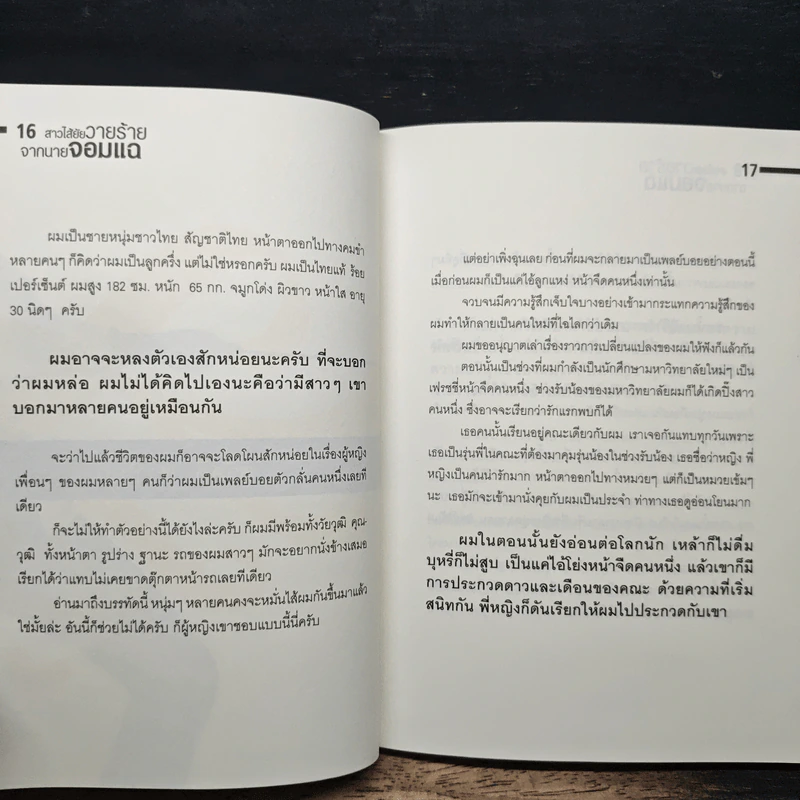 16 สาวไส้ยัยวายร้าย
จากนายจอมแฉ
ผมเป็นชายหนุ่มชาวไทย สัญชาติไทย หน้าตาออกไปทางคมขำ
หลายคนๆ ก็คิดว่าผมเป็นลูกครึ่ง แต่ไม่ใช่หรอกครับ ผมเป็นไทยแท้ ร้อย
เปอร์เซ็นต์ ผมสูง 182 ซม. หนัก 65 กก. จมูกโด่ง ผิวขาว หน้าใส อายุ
30 นิดๆ ครับ
ผมอาจจะหลงตัวเองสักหน่อยนะครับ ที่จะบอก
ว่าผมหล่อ ผมไม่ได้คิดไปเองนะคือว่ามีสาวๆ เขา
บอกมาหลายคนอยู่เหมือนกัน
จะว่าไปแล้วชีวิตของผมก็อาจจะโลดโผนสักหน่อยในเรื่องผู้หญิง
เพื่อนๆ ของผมหลายๆ คนก็ว่าผมเป็นเพลย์บอยตัวกลั่นคนหนึ่งเลยที
เดียว
ก็จะไม่ให้ทำตัวอย่างนี้ได้ยังไงล่ะครับ ก็ผมมีพร้อมทั้งวัยวุฒิ คุณ-
วุฒิ ทั้งหน้าตา รูปร่าง ฐานะ รถของผมสาวๆ มักจะอยากนั่งข้างเสมอ
เรียกได้ว่าแทบไม่เคยขาดตุ๊กตาหน้ารถเลยทีเดียว
อ่านมาถึงบรรทัดนี้ หนุ่มๆ หลายคนคงจะหมั่นไส้ผมกันขึ้นมาแล้ว
ใช่มั้ยล่ะ อันนี้ก็ช่วยไม่ได้ครับ ก็ผู้หญิงเขาชอบแบบนี้นี่ครับ
17
แต่อย่าเพิ่งฉุนเลย ก่อนที่ผมจะกลายมาเป็นเพลย์บอยอย่างตอนนี้
เมื่อก่อนผมก็เป็นแค่ไอ้ลูกแหง่ หน้าจืดคนหนึ่งเท่านั้น
จวบจนมีความรู้สึกเจ็บใจบางอย่างเข้ามากระแทกความรู้สึกของ
ผมทำให้กลายเป็นคนใหม่ที่ไฉไลกว่าเดิม
ผมขออนุญาตเล่าเรื่องราวการเปลี่ยนแปลงของผมให้ฟังก็แล้วกัน
ตอนนั้นเป็นช่วงที่ผมกำลังเป็นนักศึกษามหาวิทยาลัยใหม่ๆ เป็น
เฟรชชี่หน้าจืดคนหนึ่ง ช่วงรับน้องของมหาวิทยาลัยผมก็ได้เกิดปิ๊งสาว
คนหนึ่ง ซึ่งอาจจะเรียกว่ารักแรกพบก็ได้
เธอคนนั้นเรียนอยู่คณะเดียวกับผม เราเจอกันแทบทุกวันเพราะ
เธอเป็นรุ่นพี่ในคณะที่ต้องมาคุมรุ่นน้องในช่วงรับน้อง เธอชื่อว่าหญิง พี่
หญิงเป็นคนน่ารักมาก หน้าตาออกไปทางหมวยๆ แต่ก็เป็นหมวยเข้มๆ
นะ เธอมักจะเข้ามานั่งคุยกับผมเป็นประจำ ท่าทางเธอดูอ่อนโยนมาก
ผมในตอนนั้นยังอ่อนต่อโลกนัก เหล้าก็ไม่ดื่ม
บุหรี่ก็ไม่สูบ เป็นแค่ไอ้โย่งหน้าจืดคนหนึ่ง แล้วเขาก็มี
การประกวดดาวและเดือนของคณะ ด้วยความที่เริ่ม
สนิทกัน พี่หญิงก็ดันเรียกให้ผมไปประกวดกับเขา